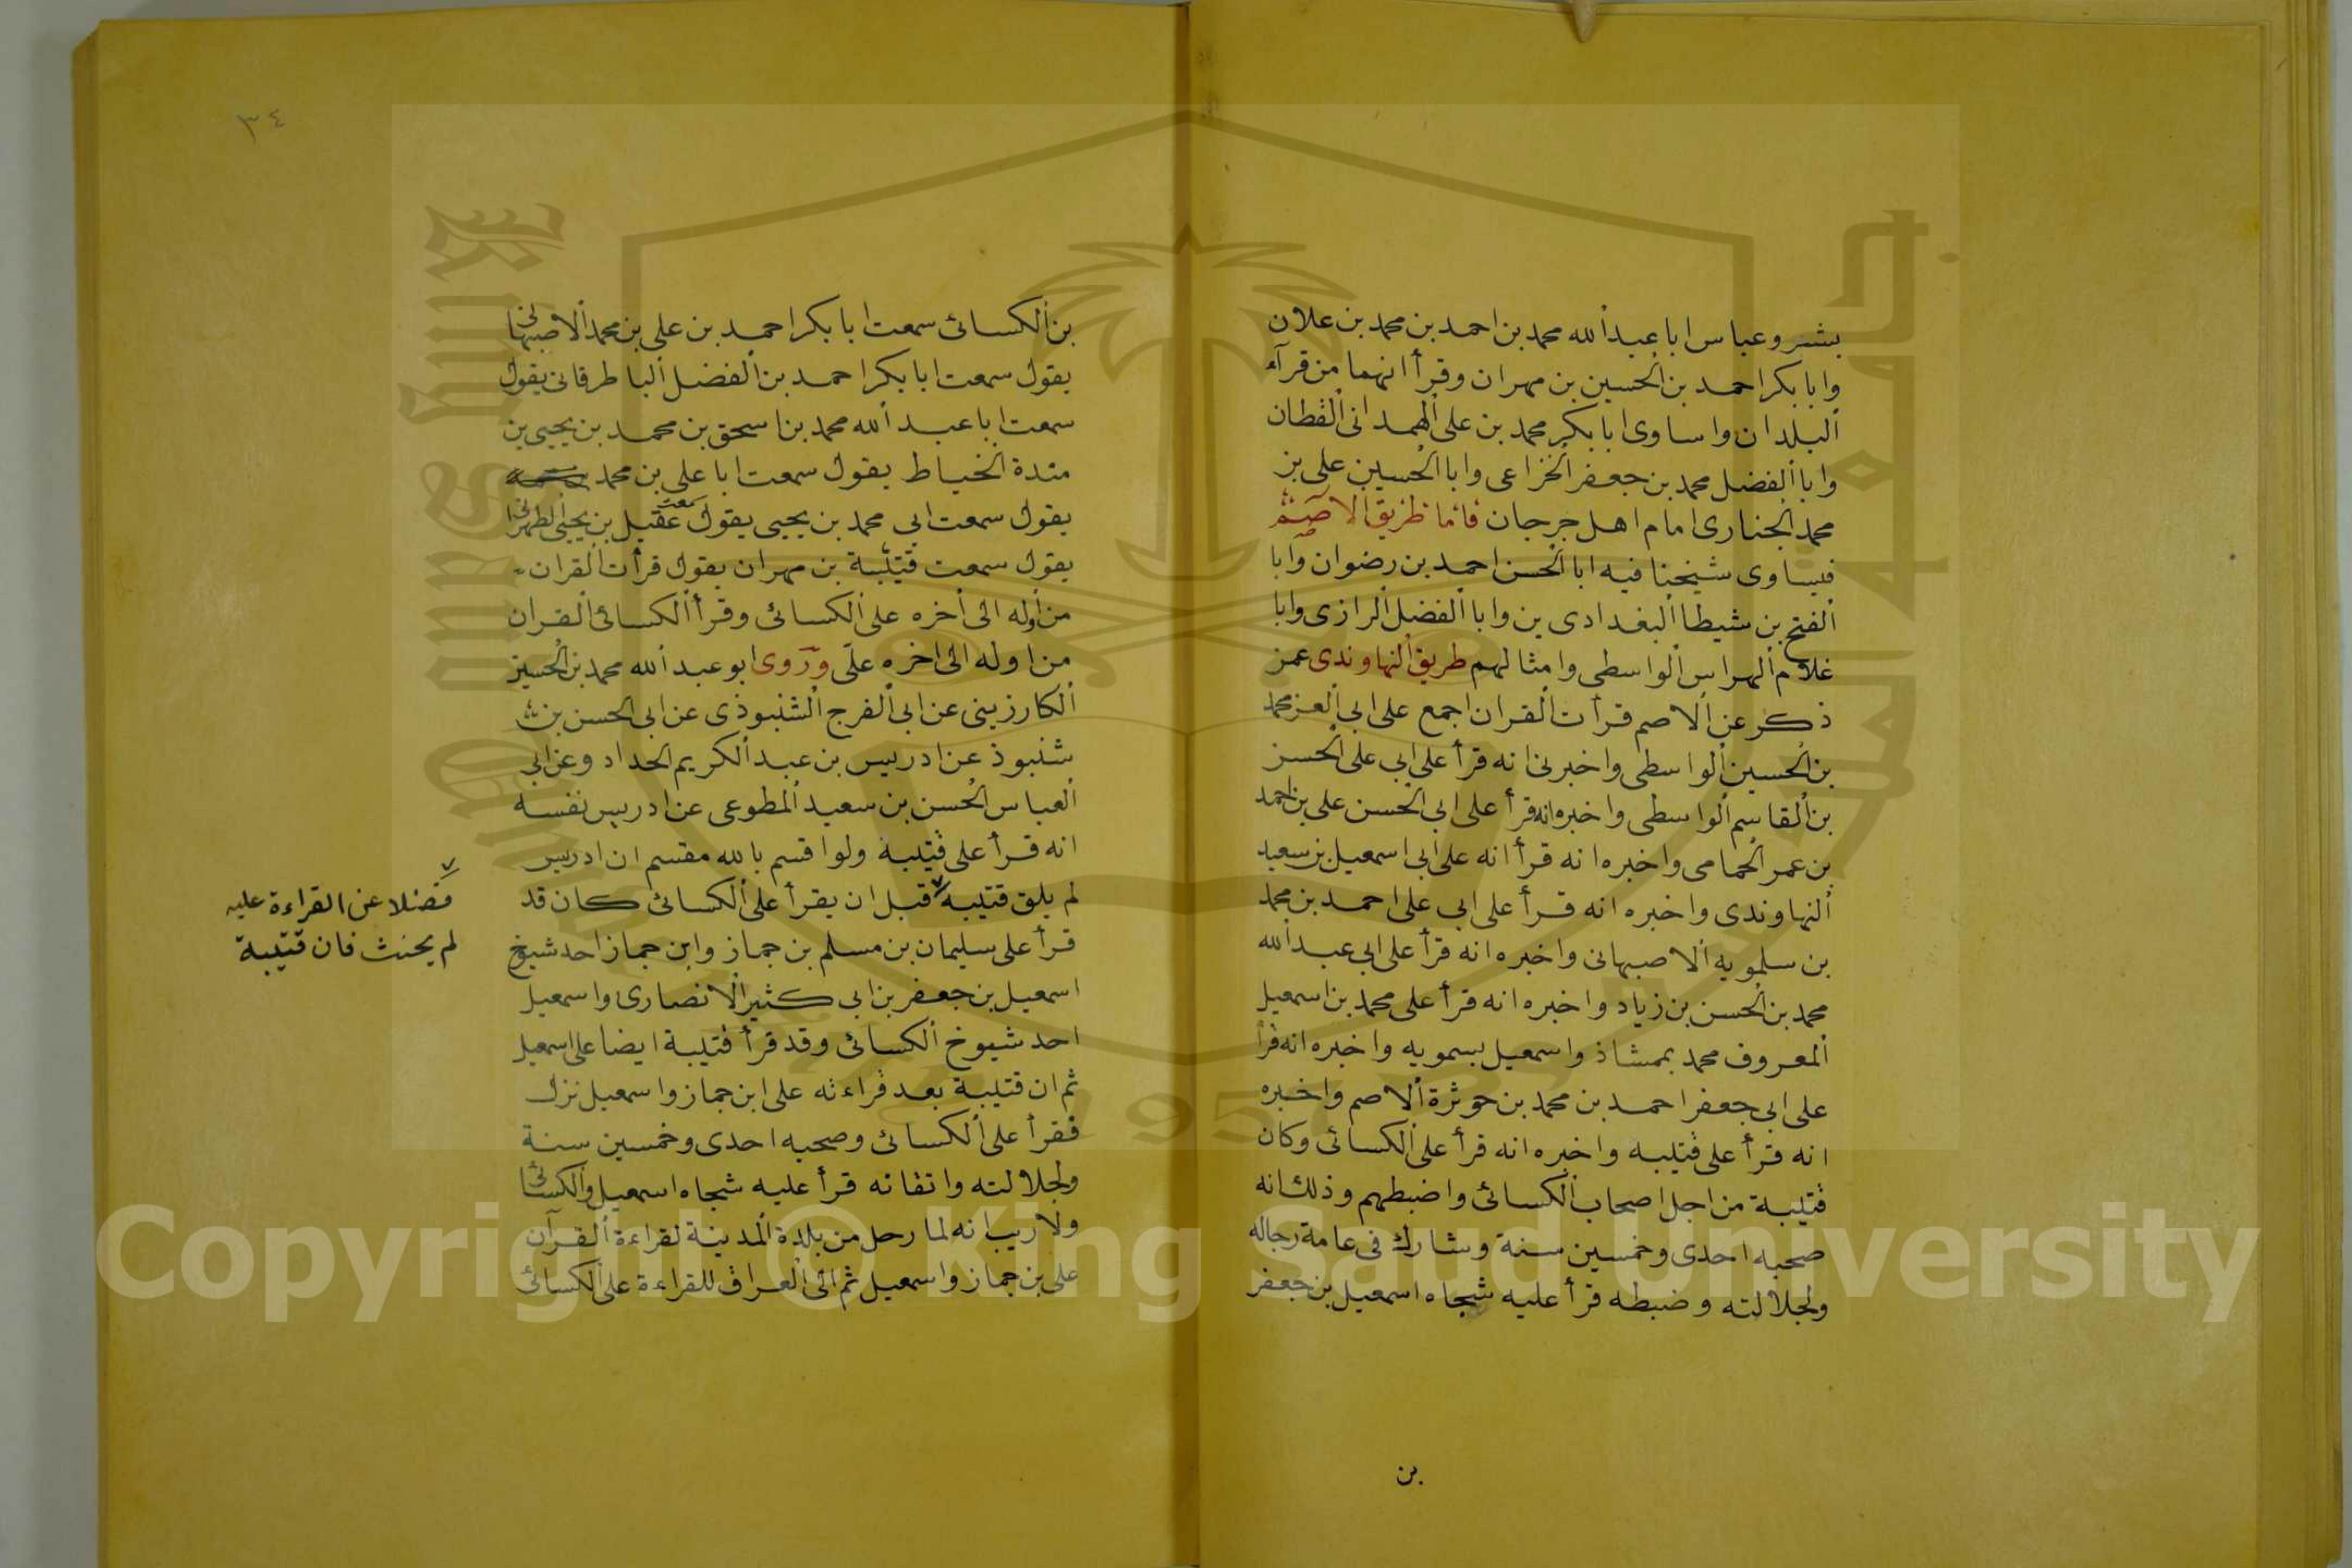 بشر وعباس ابا عبد الله محمد بن احمد بن محمد بن علان
وابا بكر احمد بن الحسين بن مهران وقرأ انهما من قرآء
البلدان واساوى ابا بكر محمد بن على الهمدانى القطان
وابا الفضل محمد بن جعفر الخزاعى وابا الحسين على بن
محمد الجنارى امام اهل جرجان فاما طريق الاصم
فيساوى شيخنا فيه ابا الحسن احمد بن رضوان وابا
الفتح بن شيطا البغدادى ين وابا الفضل الرازى وابا
غلام الهراس الواسطى وامثالهم طريق النهاوندى عمن
ذكر عن الاصم قرأت القران اجمع على ابى العز محمد
بن الحسين الواسطى واخبرنى انه قرأ على ابى على الحسن
بن القاسم الواسطى واخبره انه قرأ على ابى الحسن على بن احمد
بن عمر الحمامى واخبره انه قرأ انه على ابى اسمعيل بن سعيد
النهاوندى واخبره انه قرأ على ابى على احمد بن محمد
بن سلمويه الاصبهانى واخبره انه قرأ على ابى عبد الله
محمد بن الحسن بن زياد واخبره انه قرأ على محمد بن اسمعيل
المعروف محمد بممشاذ واسمعيل بسمويه واخبره انه قرأ
على ابى جعفر احمد بن محمد بن حوثرة الاصم واخبره
انه قرأ على قتيبه واخبره انه قرأ على الكسائى وكان
قتيبة من اجل اصحاب الكسائى واضبطهم وذلك انه
صحبه احدى وخمسين سنة وشارك فى عامة رجاله
ولجلالته وضبطه قرأ عليه شيخاه اسمعيل بن جعفر
بن
٣٤
بن الكسائى سمعت ابا بكر احمد بن على بن محمد الاصبهانى
يقول سمعت ابا بكر احمد بن الفضل الباطرقانى يقول
سمعت ابا عبد الله محمد بن اسحق بن محمد بن يحيى بن
مندة الخياط يقول سمعت ابا على بن محمد
يقول سمعت ابى محمد بن يحيى يقول سمعت عقيل بن يحيى الطهرانى
يقول سمعت قتيبة بن مهران يقول قرأت القران
من اوله الى اخره على الكسائى وقرأ الكسائى القران
من اوله الى اخره علّى وروى ابو عبد الله محمد بن الحسين
الكارزينى عن ابى الفرج الشنبوذى عن ابى الحسن بن
شنبوذ عن ادريس بن عبد الكريم الحداد وعن ابى
العباس الحسن بن سعيد المطوعى عن ادريس نفسه
انه قرأ على قتيبة ولو اقسم بالله مقسم ان ادريس
لم يلق قتيبه قبل ان يقرأ على الكسائى كان قد
فضلا عن القراءة عليه
لم يحنث فان قتيبة
قرأ على سليمان بن مسلم بن جماز وابن جماز احد شيوخ
اسمعيل بن جعفر بن ابى كثير الانصارى واسمعيل
احد شيوخ الكسائى وقد قرأ قتيبة ايضا على اسمعيل
ثم ان قتيبة بعد قراءته على ابن جماز واسمعيل نزل
فقرأ على الكسائى وصحبه احدى وخمسين سنة
ولجلالته واتقانه قرأ عليه شيخاه اسمعيل والكسائى
ولا ريب انه لما رحل من بلدة المدينة لقراءة القرآن
على بن جماز واسمعيل ثم الى العراق للقراءة على الكسائى
Copyright © King Saud University
1957